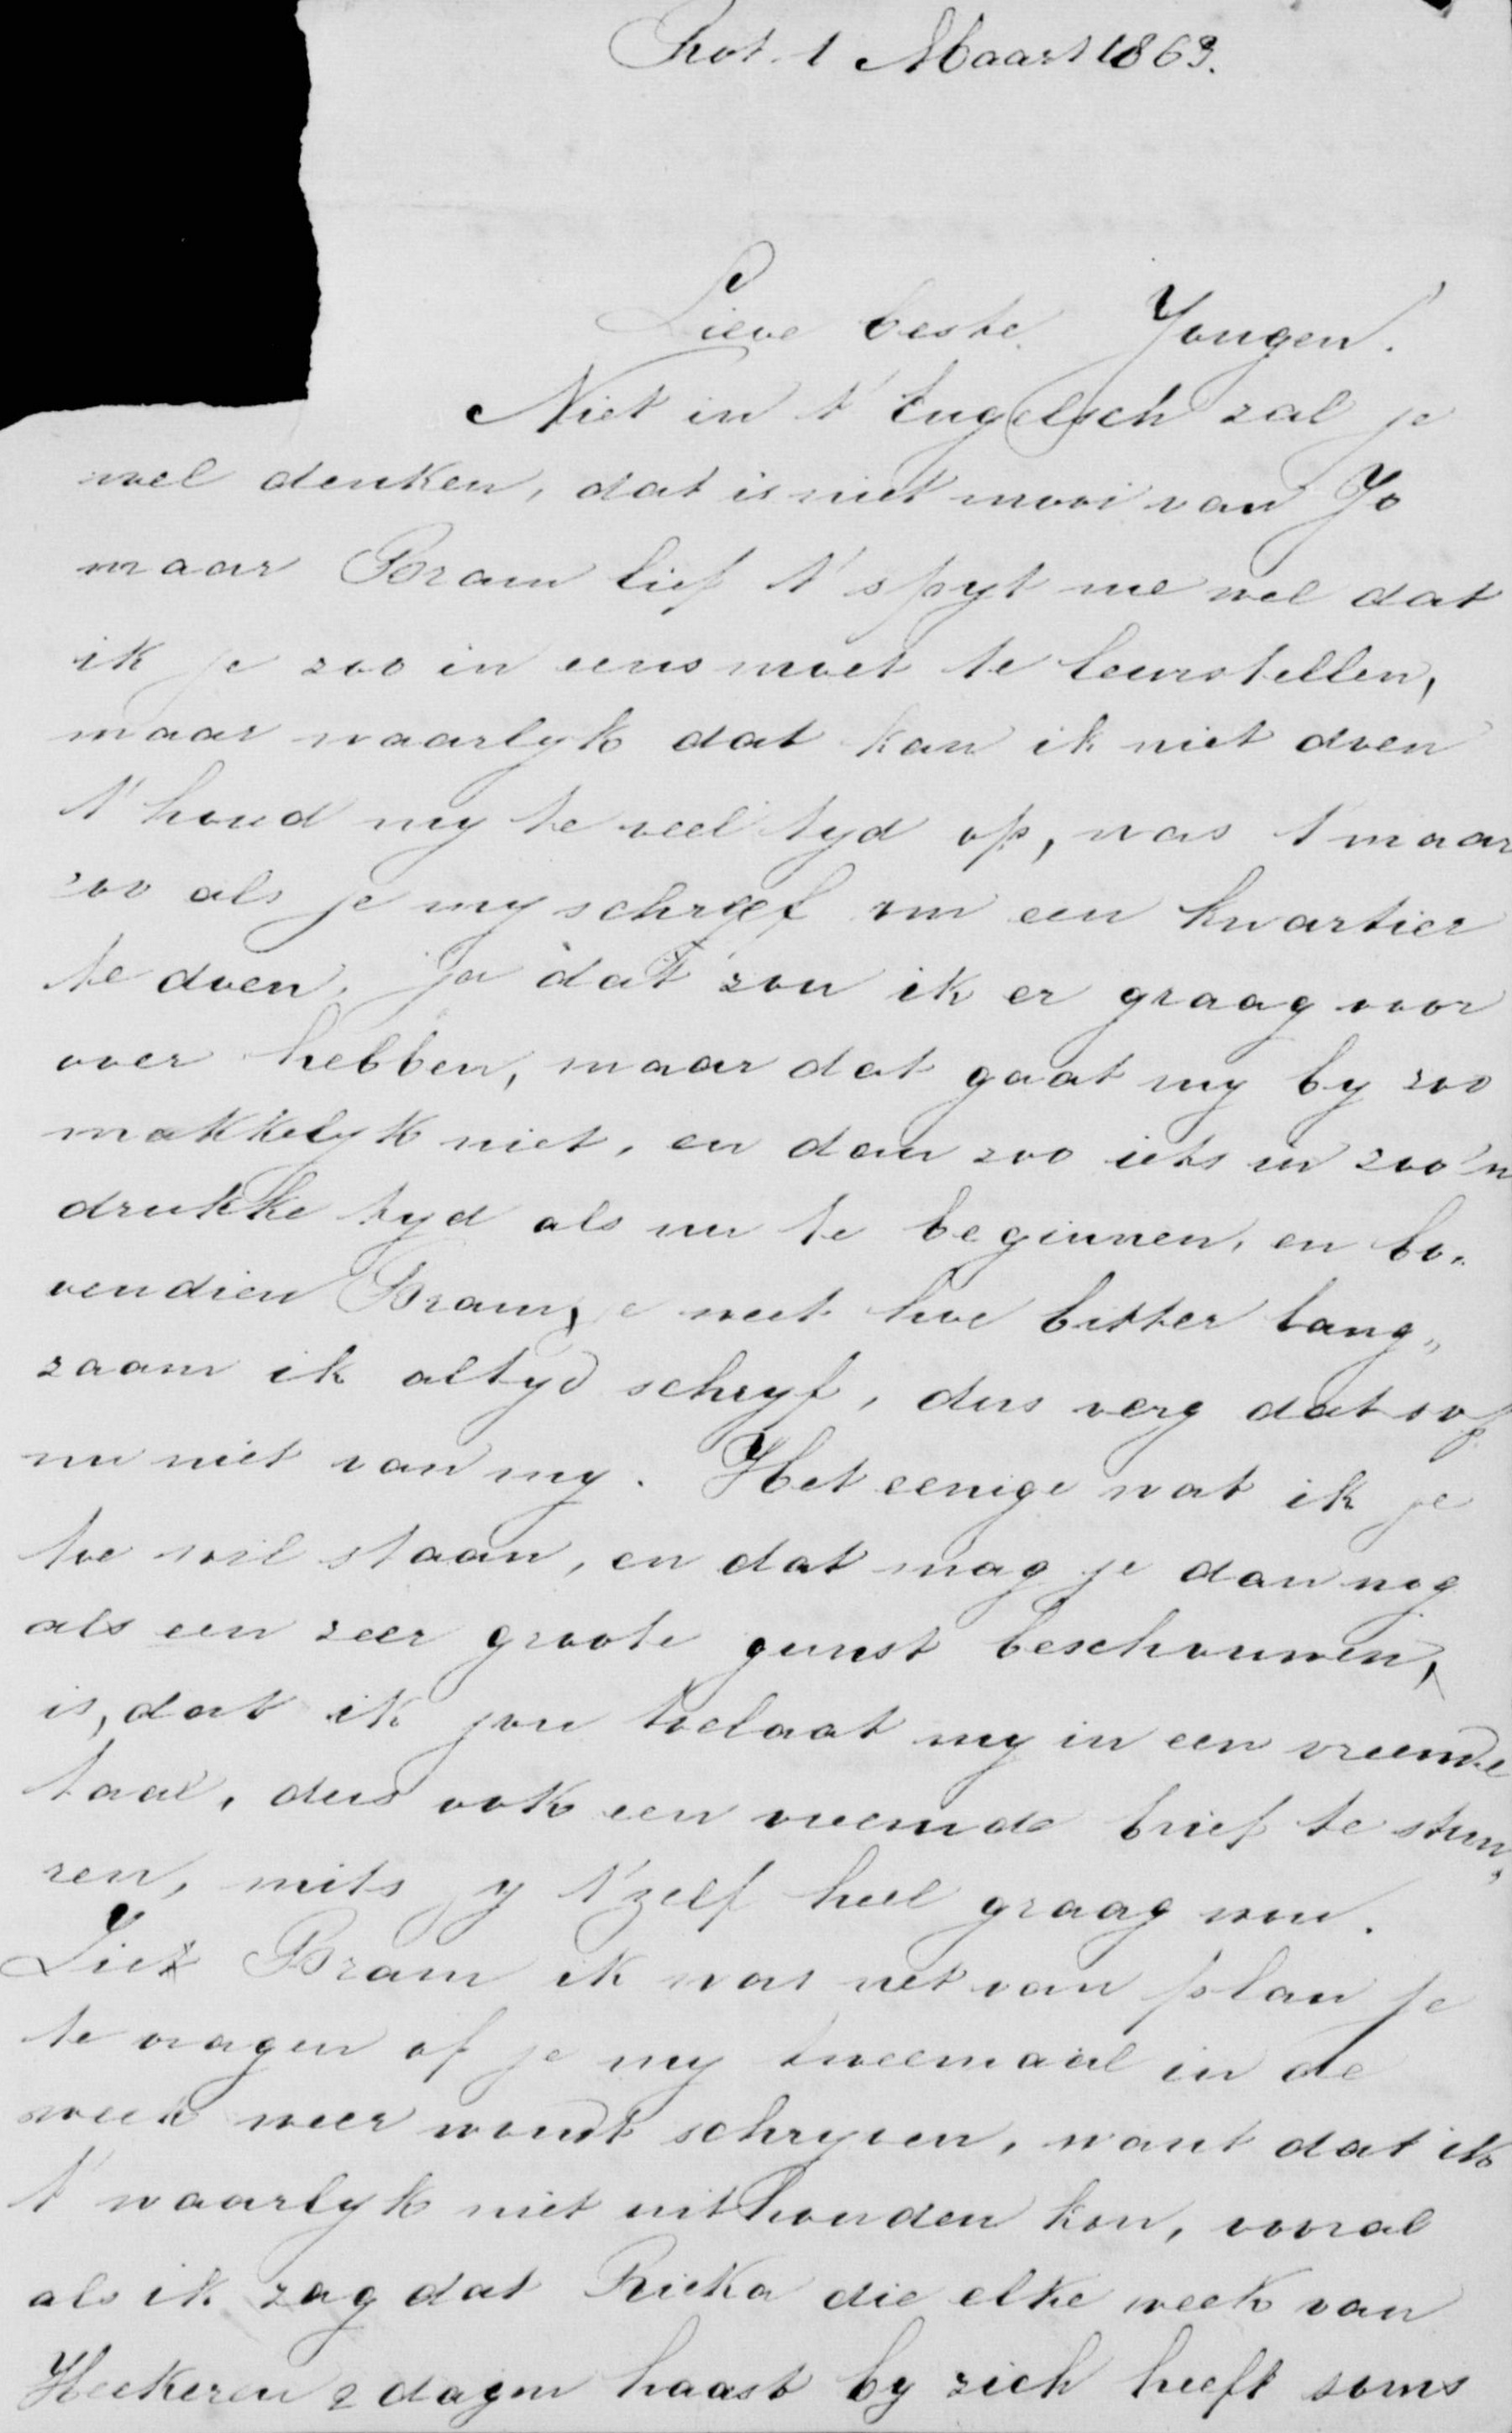 Rot. 1 Maart 1863.
Lieve beste Jongen.
Niet in t' Engelsch zal je
wel denken, dat is niet mooi van Jo
maar Bram lief t' spyt me wel dat
ik je zoo in eens moet te leurstellen,
maar waarlyk dat kan ik niet doen
t' houd my te veel tyd op, was t' maar
zoo als je my schreef om een kwartier
te doen, ja dat zou ik er graag voor
over hebben, maar dat gaat my by zoo
makkelyk niet, en dan zoo iets in zoo'n
drukke tyd als nu te beginnen, en bo„
vendien Bram, je weet hoe bitter lang„
zaam ik altyd schryf, dus verg dat
nu niet van my. Het eenige wat ik je
toe wil staan, en dat mag je dan nog
als een zeer groote gunst beschouwen,
is, dat ik jou toelaat my in een vreemde
taal, dus ook een vreemde brief te stuu„
ren, mits jy t'zelf heel graag wou.
Ziet Bram ik was net van plan je
te vragen of je my tweemaal in de
week weer woudt schryven, want dat ik
t' waarlyk niet uithouden kon, vooral
als ik zag dat Ricka die elke week van
Heekeren 2 dagen haast by zich heeft soms